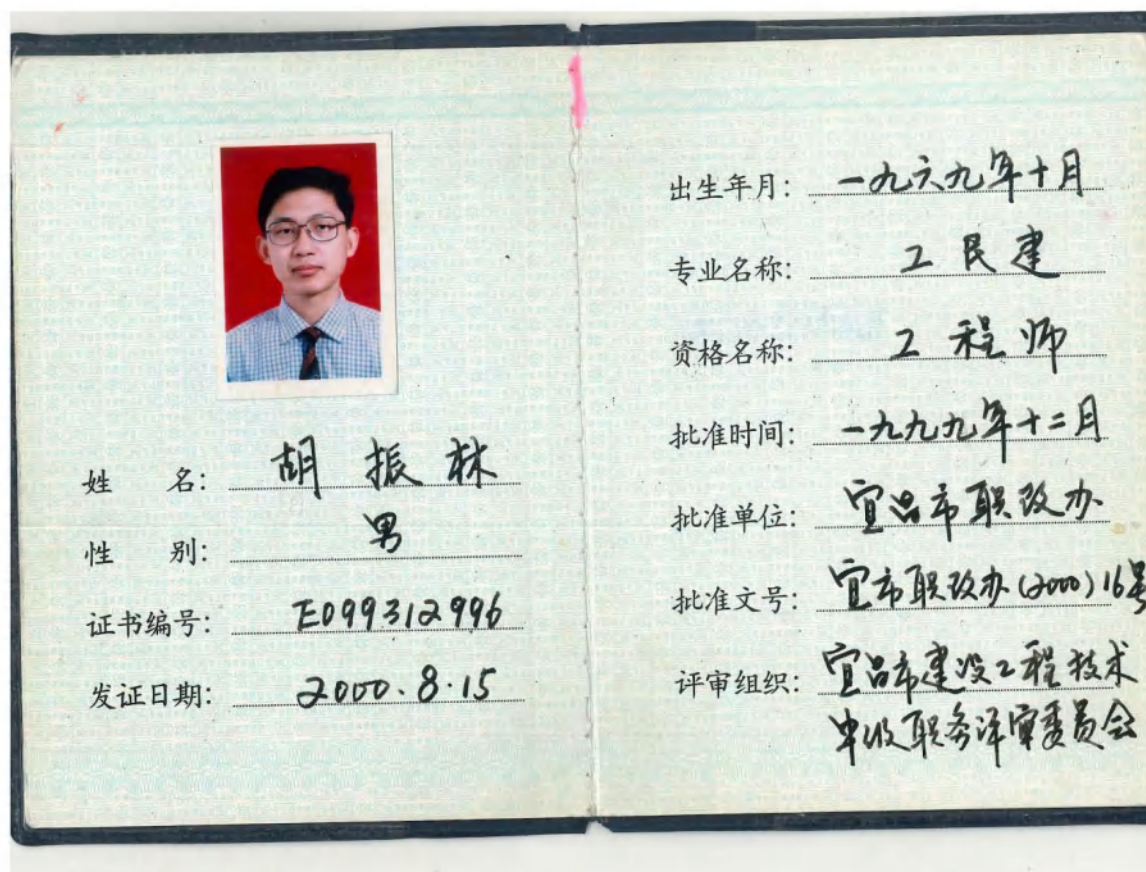 姓 名: 胡振林
性 别: 男
证书编号: E099312996
发证日期: 2000.8.15
出生年月: 一九六九年十月
专业名称: 工民建
资格名称: 工程师
批准时间: 一九九九年十二月
批准单位: 宜昌市职改办
批准文号: 宜市职改办(2000)16号
评审组织: 宜昌市建设工程技术
中级职务评审委员会